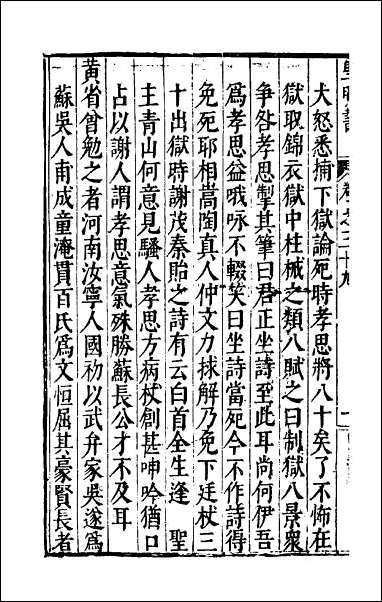 大怒悉捕下獄論死時孝思將八十矣了不怖在
獄取錦衣獄中柱械之類八賦之曰制獄八景衆
争咎孝思掣其筆曰君正坐詩至此耳尚何伊吾
爲孝思益哦咏不輟笑曰坐詩當死今不作詩得
免死耶相嵩陶真人仲文力捄解乃免下廷杖三
十出獄時謝茂秦貽之詩有云白首全生逢　聖
主青山何意見騷人孝思方病杖創甚呻吟猶口
占以謝人謂孝思意氣殊勝蘇長公才不及耳
黄省曾勉之者河南汝寧人國初以武弁家吳遂爲
蘇吳人甫成童淹貫百氏爲文恒屈其豪賢長者
卷之二十九